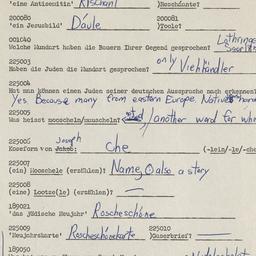 'eine Antisemitin' Rischant )Roschánte?
200080 200081
'ein Jesusbild' Doule )Toole?
001040 Lothringe
Welche Mundart haben die Bauern Ihrer Gegend gesprochen? Saarl
225003 only Viehhändler
Haben die Juden die Mundart gesprochen?
225004
Hat man können einen Juden seiner deutschen Aussprache nach erkennen?
Yes. Because many from eastern Europe. Native
225005
Was heisst mooscheln/mauscheln? /another word for
225006 Joseph
Koseform von Jakob: Che (-lein/-le/-che
225007
(ein) Mooschele (erzählen)? Name, O also a story
225008
(eine) Lootze(le) (erzählen)? —
189021
'das jüdische Neujahr' Roscheschone
225009 225010
'Neujahrskarte' Roscheschonekarte )Guserbrief? —
189050